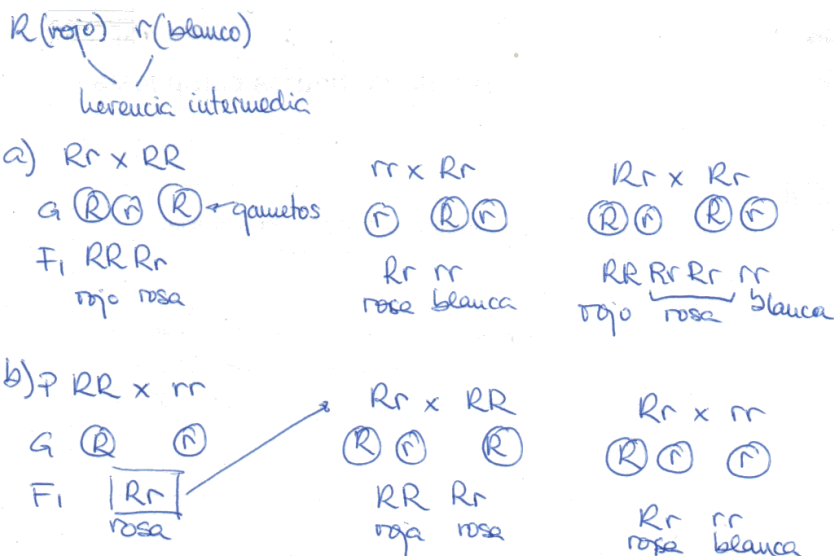 R (rojo) r (blanco)
herencia intermedia
a) Rr x RR
G R r R ← gametos
F1 RR Rr
rojo rosa
rr x Rr
r R r
Rr rr
rosa blanca
Rr x Rr
R r R r
RR Rr Rr rr
rojo rosa blanca
b) P RR x rr
G R r
F1 Rr
rosa
Rr x RR
R r R
RR Rr
roja rosa
Rr x rr
R r r
Rr rr
rosa blanca